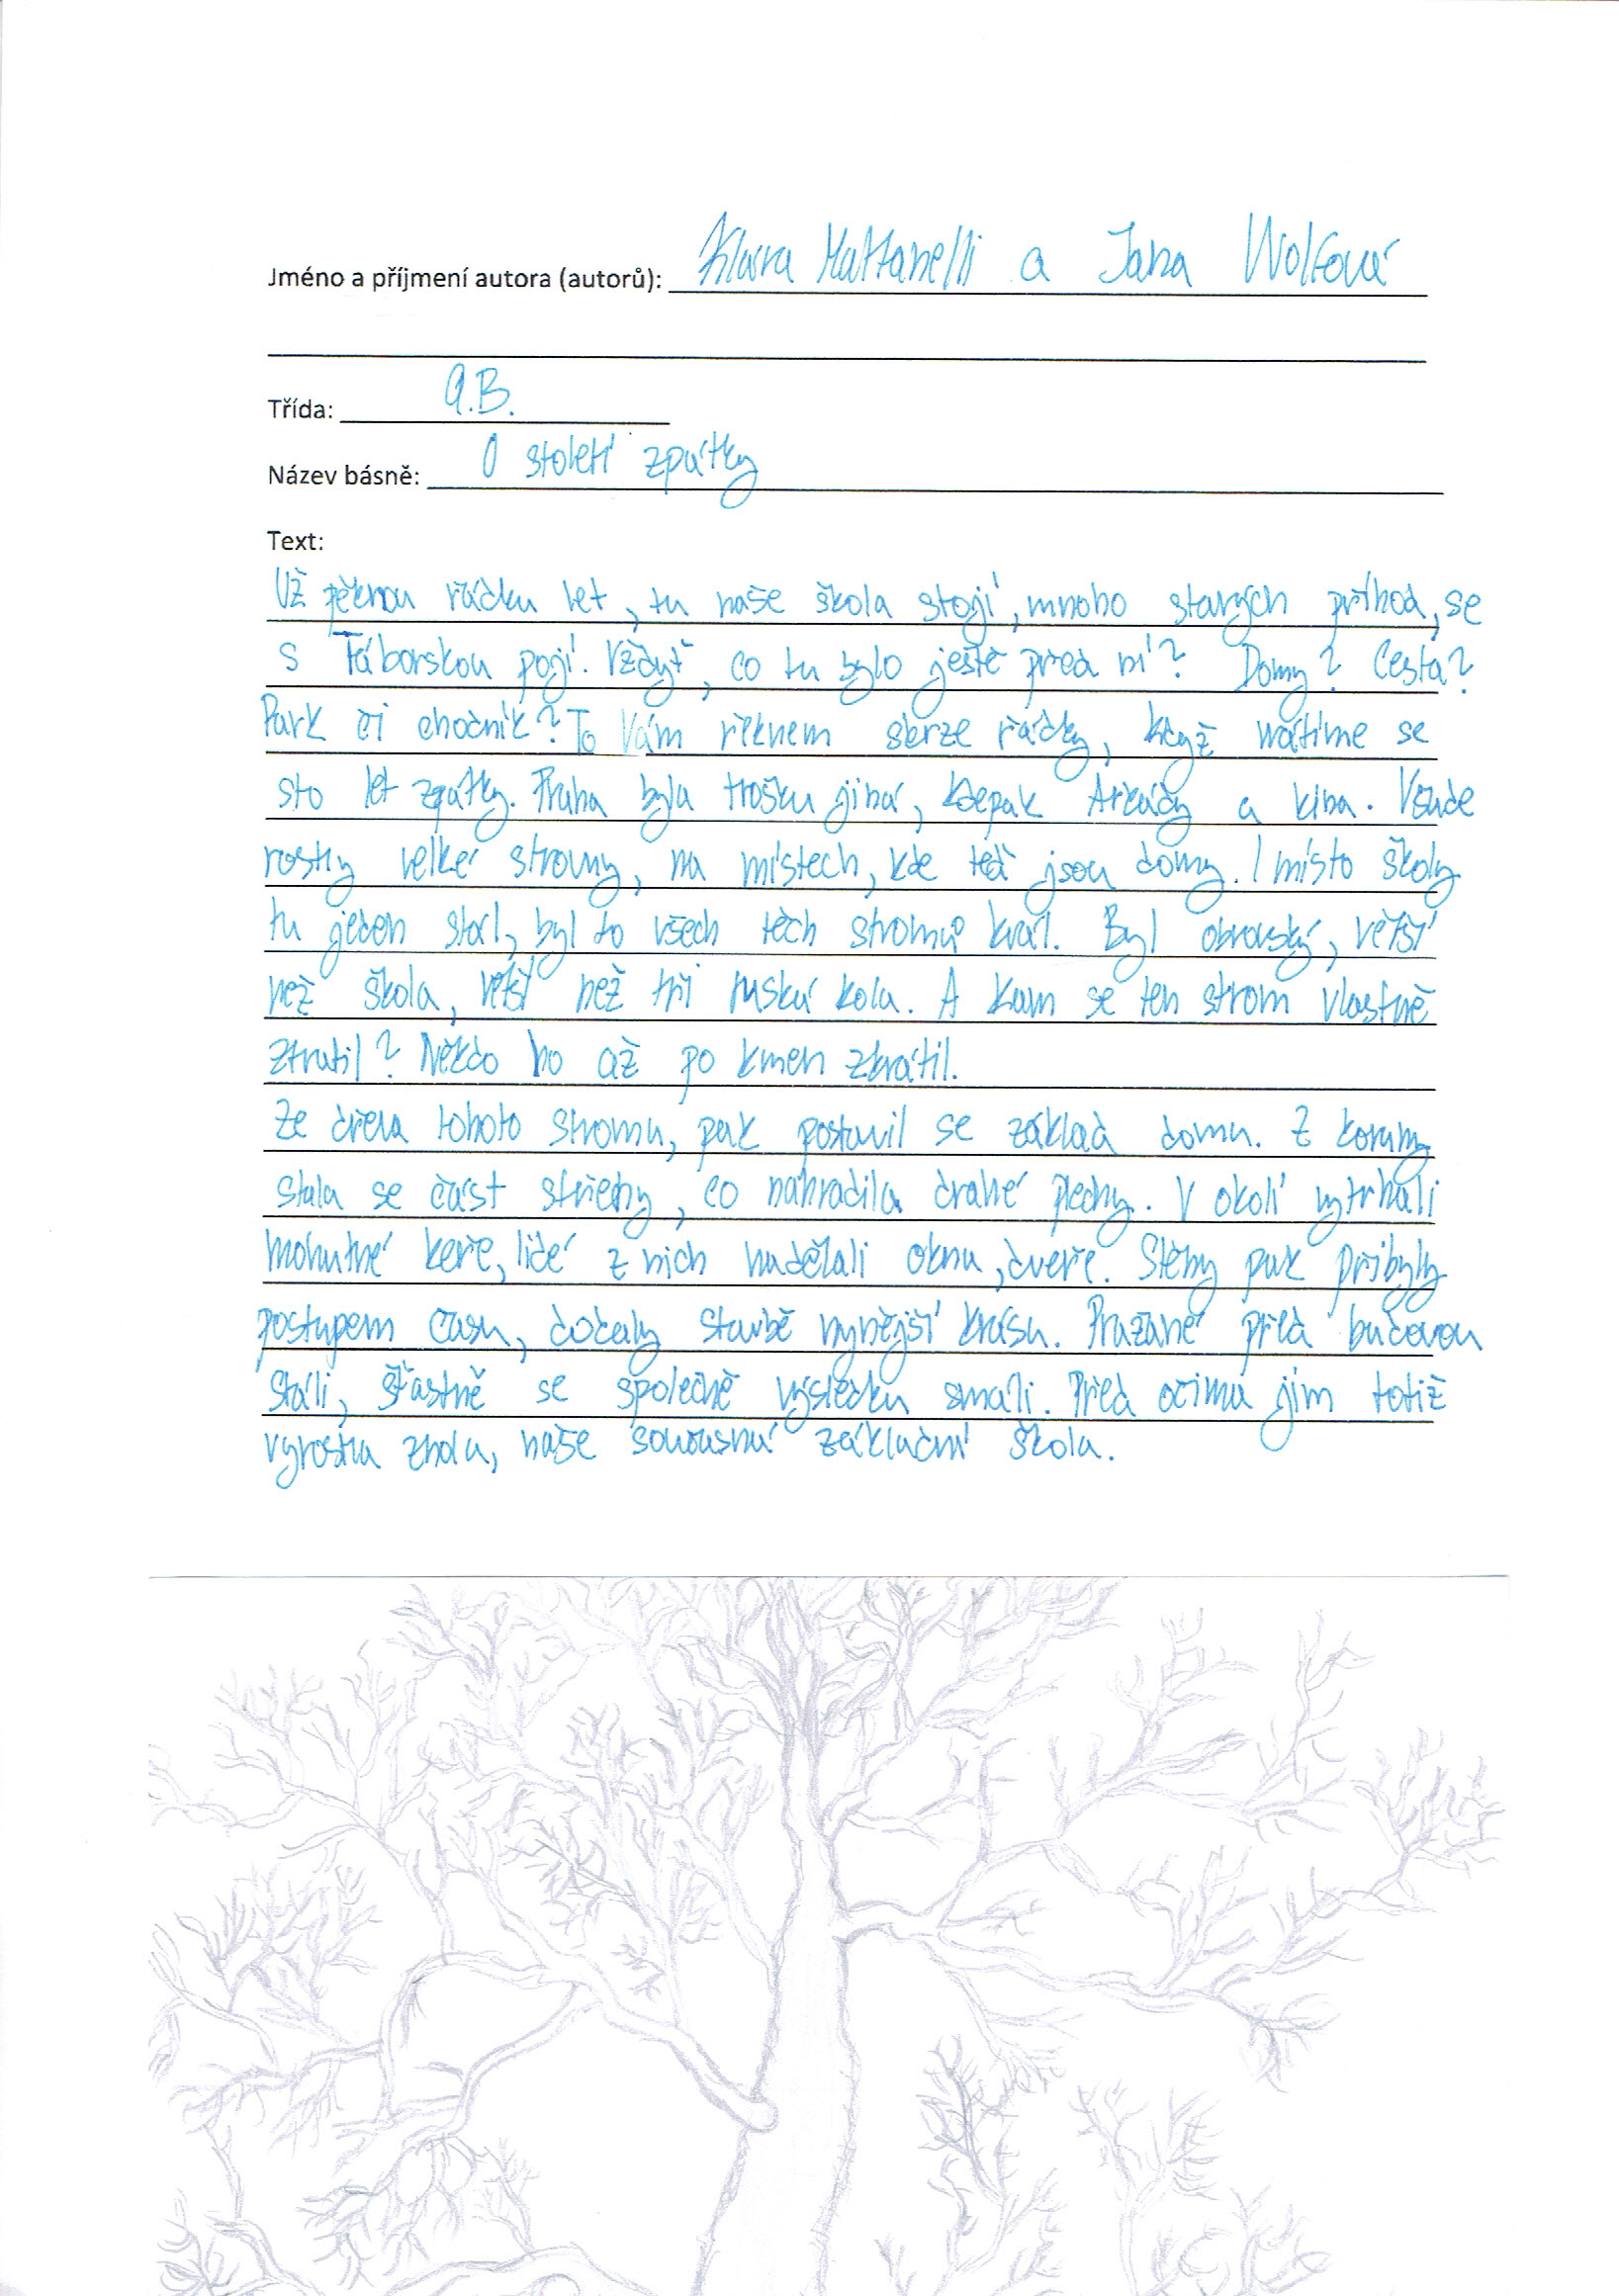 Jméno a příjmení autora (autorů): Klára Mattanelli a Jana Wolfová
Třída: 9.B.
Název básně: O století zpátky
Text:
Už pěknou řádku let, tu naše škola stojí, mnoho starých příhod, se
s Táborskou pojí. Vždyť, co tu bylo ještě před ní? Domy? Cesta?
Park či chodník? To Vám řeknem skrze řádky, když vrátíme se
sto let zpátky. Praha byla trošku jiná, kdepak Arkády a kina. Všude
rostly velké stromy, na místech, kde teď jsou domy. I místo školy
tu jeden stál, byl to všech těch stromů král. Byl obrovský, větší
než škola, větší než tři ruská kola. A kam se ten strom vlastně
ztratil? Někdo ho až po kmen zkrátil.
Ze dřeva tohoto stromu, pak postavil se základ domu. Z koruny
stala se část střechy, co nahradila drahé plechy. V okolí vytrhali
mohutné keře, lidé z nich nadělali okna, dveře. Stěny pak přibyly
postupem času, dodaly stavbě nynější krásu. Pražané před budovou
stáli, šťastně se společně výsledku smáli. Před očima jim totiž
vyrostla zhola, naše současná základní škola.